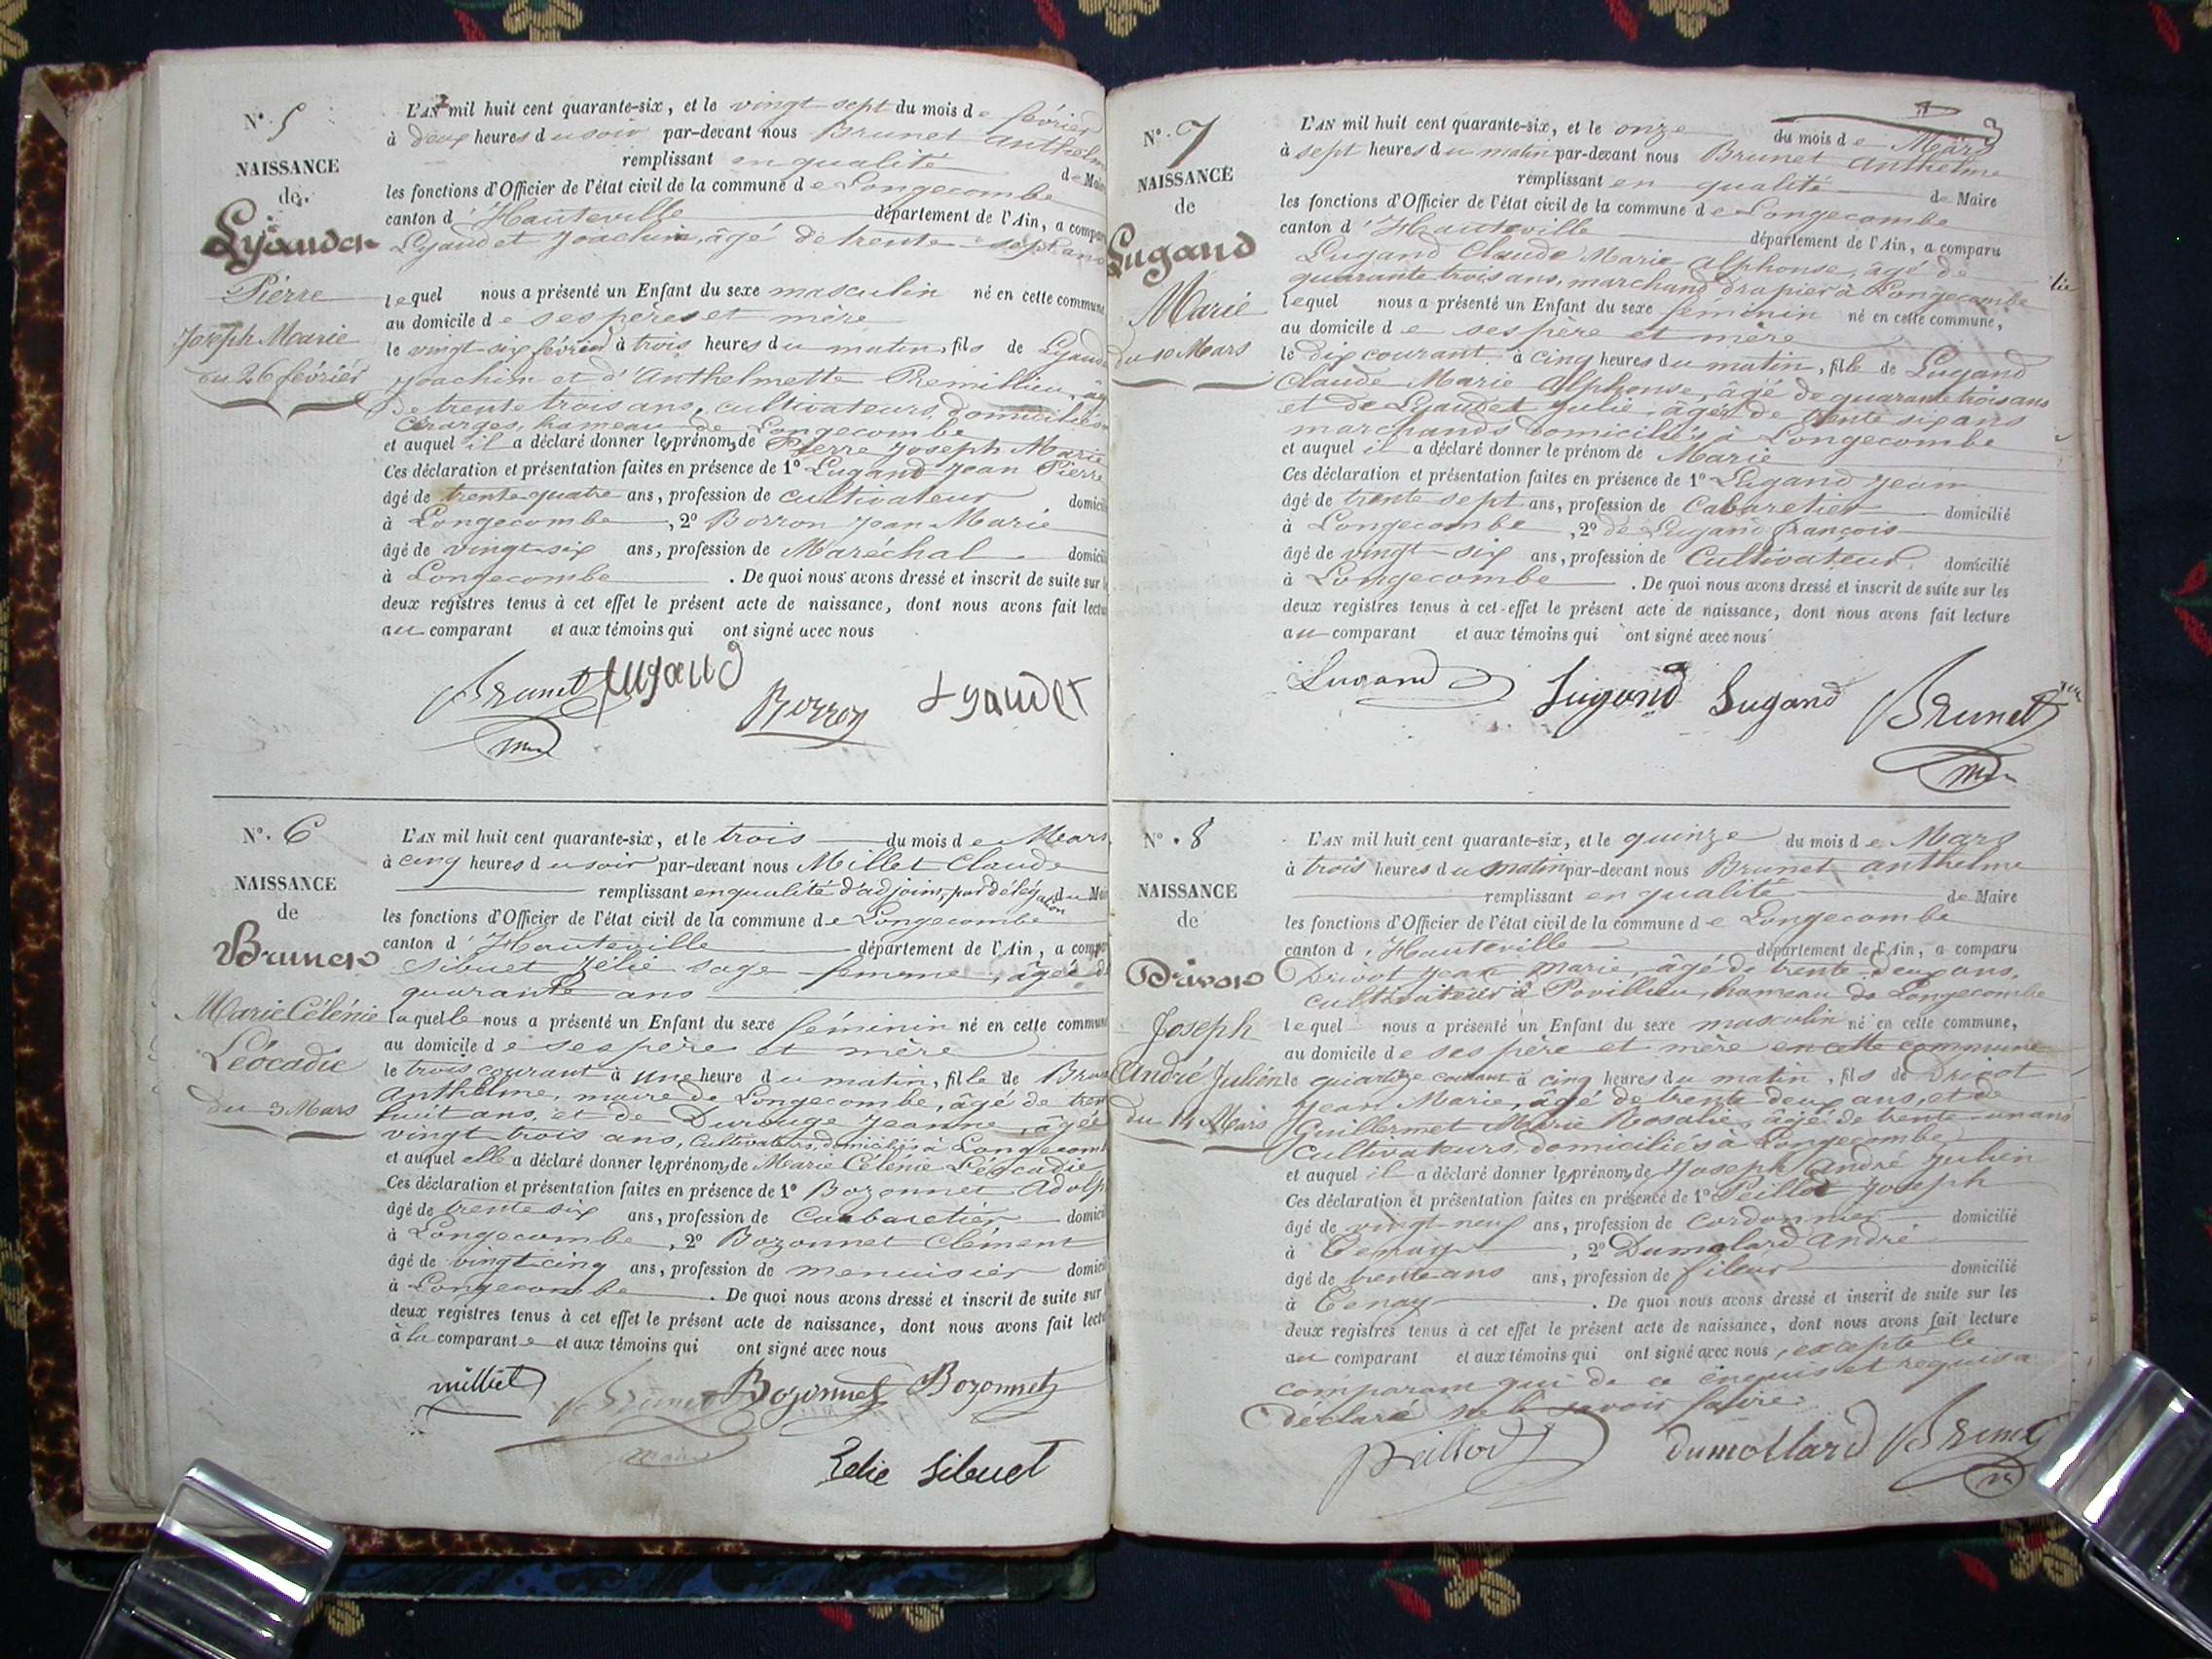 N° 5
NAISSANCE
de
Lyaudet
Pierre
Joseph Marie
du 26 février
L'AN mil huit cent quarante-six, et le vingt-sept du mois de février
à deux heures du soir par-devant nous Brunet Anthelme
remplissant en qualité de Maire
les fonctions d'Officier de l'état civil de la commune de Longecombe
canton d'Hauteville département de l'Ain, a comparu
Lyaudet Joachim, âgé de trente-sept ans
lequel nous a présenté un Enfant du sexe masculin né en cette commune
au domicile de ses pères et mère
le vingt-six février à trois heures du matin, fils de Lyaudet
Joachim et d'Anthelmette Remillieu, âgée
de trente trois ans, cultivateurs, domiciliés
hameau de Longecombe
et auquel il a déclaré donner les prénoms de Pierre Joseph Marie
Ces déclaration et présentation faites en présence de 1° Lugand Jean Pierre
âgé de trente quatre ans, profession de cultivateur domicilié
à Longecombe, 2° Borron Jean Marie
âgé de vingt-six ans, profession de Maréchal domicilié
à Longecombe. De quoi nous avons dressé et inscrit de suite sur les
deux registres tenus à cet effet le présent acte de naissance, dont nous avons fait lecture
au comparant et aux témoins qui ont signé avec nous
Brunet Lugand Borron Lyaudet
N° 6
NAISSANCE
de
Brunet
Marie Célénie
Léocadie
du 3 Mars
L'AN mil huit cent quarante-six, et le trois du mois de Mars
à cinq heures du soir par-devant nous Millet Claude
remplissant en qualité d'adjoint, par délégation du Maire
les fonctions d'Officier de l'état civil de la commune de Longecombe
canton d'Hauteville département de l'Ain, a comparu
Sibuet Zélie sage-femme, âgée de
quarante ans
laquelle nous a présenté un Enfant du sexe féminin né en cette commune
au domicile de ses père et mère
le trois courant à une heure du matin, fille de Brunet
Anthelme, maire de Longecombe, âgé de trente
huit ans, et de Durouge Jeanne, âgée
vingt trois ans, cultivateurs, domiciliés à Longecombe
et auquel elle a déclaré donner les prénoms de Marie Célénie Léocadie
Ces déclaration et présentation faites en présence de 1° Bozonnet Adolphe
âgé de trente six ans, profession de Cabaretier domicilié
à Longecombe, 2° Bozonnet Clément
âgé de vingt cinq ans, profession de menuisier domicilié
à Longecombe. De quoi nous avons dressé et inscrit de suite sur les
deux registres tenus à cet effet le présent acte de naissance, dont nous avons fait lecture
à la comparante et aux témoins qui ont signé avec nous
Millet Brunet Bozonnet Bozonnet
maire
Zelie Sibuet
N° 7
NAISSANCE
de
Lugand
Marie
du 10 Mars
L'AN mil huit cent quarante-six, et le onze du mois de Mars
à sept heures du matin par-devant nous Brunet Anthelme
remplissant en qualité de Maire
les fonctions d'Officier de l'état civil de la commune de Longecombe
canton d'Hauteville département de l'Ain, a comparu
Lugand Claude Marie Alphonse, âgé de
quarante trois ans, marchand drapier à Longecombe
lequel nous a présenté un Enfant du sexe féminin né en cette commune,
au domicile de ses père et mère
le dix courant à cinq heures du matin, fille de Lugand
Claude Marie Alphonse, âgé de quarante trois ans
et de Lyaudet Julie, âgée de trente six ans
marchands domiciliés à Longecombe
et auquel il a déclaré donner le prénom de Marie
Ces déclaration et présentation faites en présence de 1° Lugand Jean
âgé de trente sept ans, profession de Cabaretier domicilié
à Longecombe, 2° de Lugand François
âgé de vingt-six ans, profession de Cultivateur domicilié
à Longecombe. De quoi nous avons dressé et inscrit de suite sur les
deux registres tenus à cet effet le présent acte de naissance, dont nous avons fait lecture
au comparant et aux témoins qui ont signé avec nous
Lugand Lugand Lugand Brunet
N° 8
NAISSANCE
de
Drivot
Joseph
André Julien
du 14 Mars
L'AN mil huit cent quarante-six, et le quinze du mois de Mars
à trois heures du matin par-devant nous Brunet Anthelme
remplissant en qualité de Maire
les fonctions d'Officier de l'état civil de la commune de Longecombe
canton d'Hauteville département de l'Ain, a comparu
Drivot Jean Marie, âgé de trente-deux ans,
cultivateur à Povillieu, hameau de Longecombe
lequel nous a présenté un Enfant du sexe masculin né en cette commune,
au domicile de ses père et mère en cette commune
le quatorze courant à cinq heures du matin, fils de Drivot
Jean Marie, âgé de trente deux ans, et de
Guillermet Marie Rosalie, âgée de trente-un ans
cultivateurs, domiciliés à Longecombe
et auquel il a déclaré donner les prénoms de Joseph André Julien
Ces déclaration et présentation faites en présence de 1° Peillod Joseph
âgé de vingt-neuf ans, profession de cordonnier domicilié
à Tenay, 2° Dumolard André
âgé de trente ans ans, profession de fileur domicilié
à Tenay. De quoi nous avons dressé et inscrit de suite sur les
deux registres tenus à cet effet le présent acte de naissance, dont nous avons fait lecture
au comparant et aux témoins qui ont signé avec nous, excepté le
comparant qui de ce enquis et requis a
déclaré ne le savoir faire.
Peillod dumollard Brunet